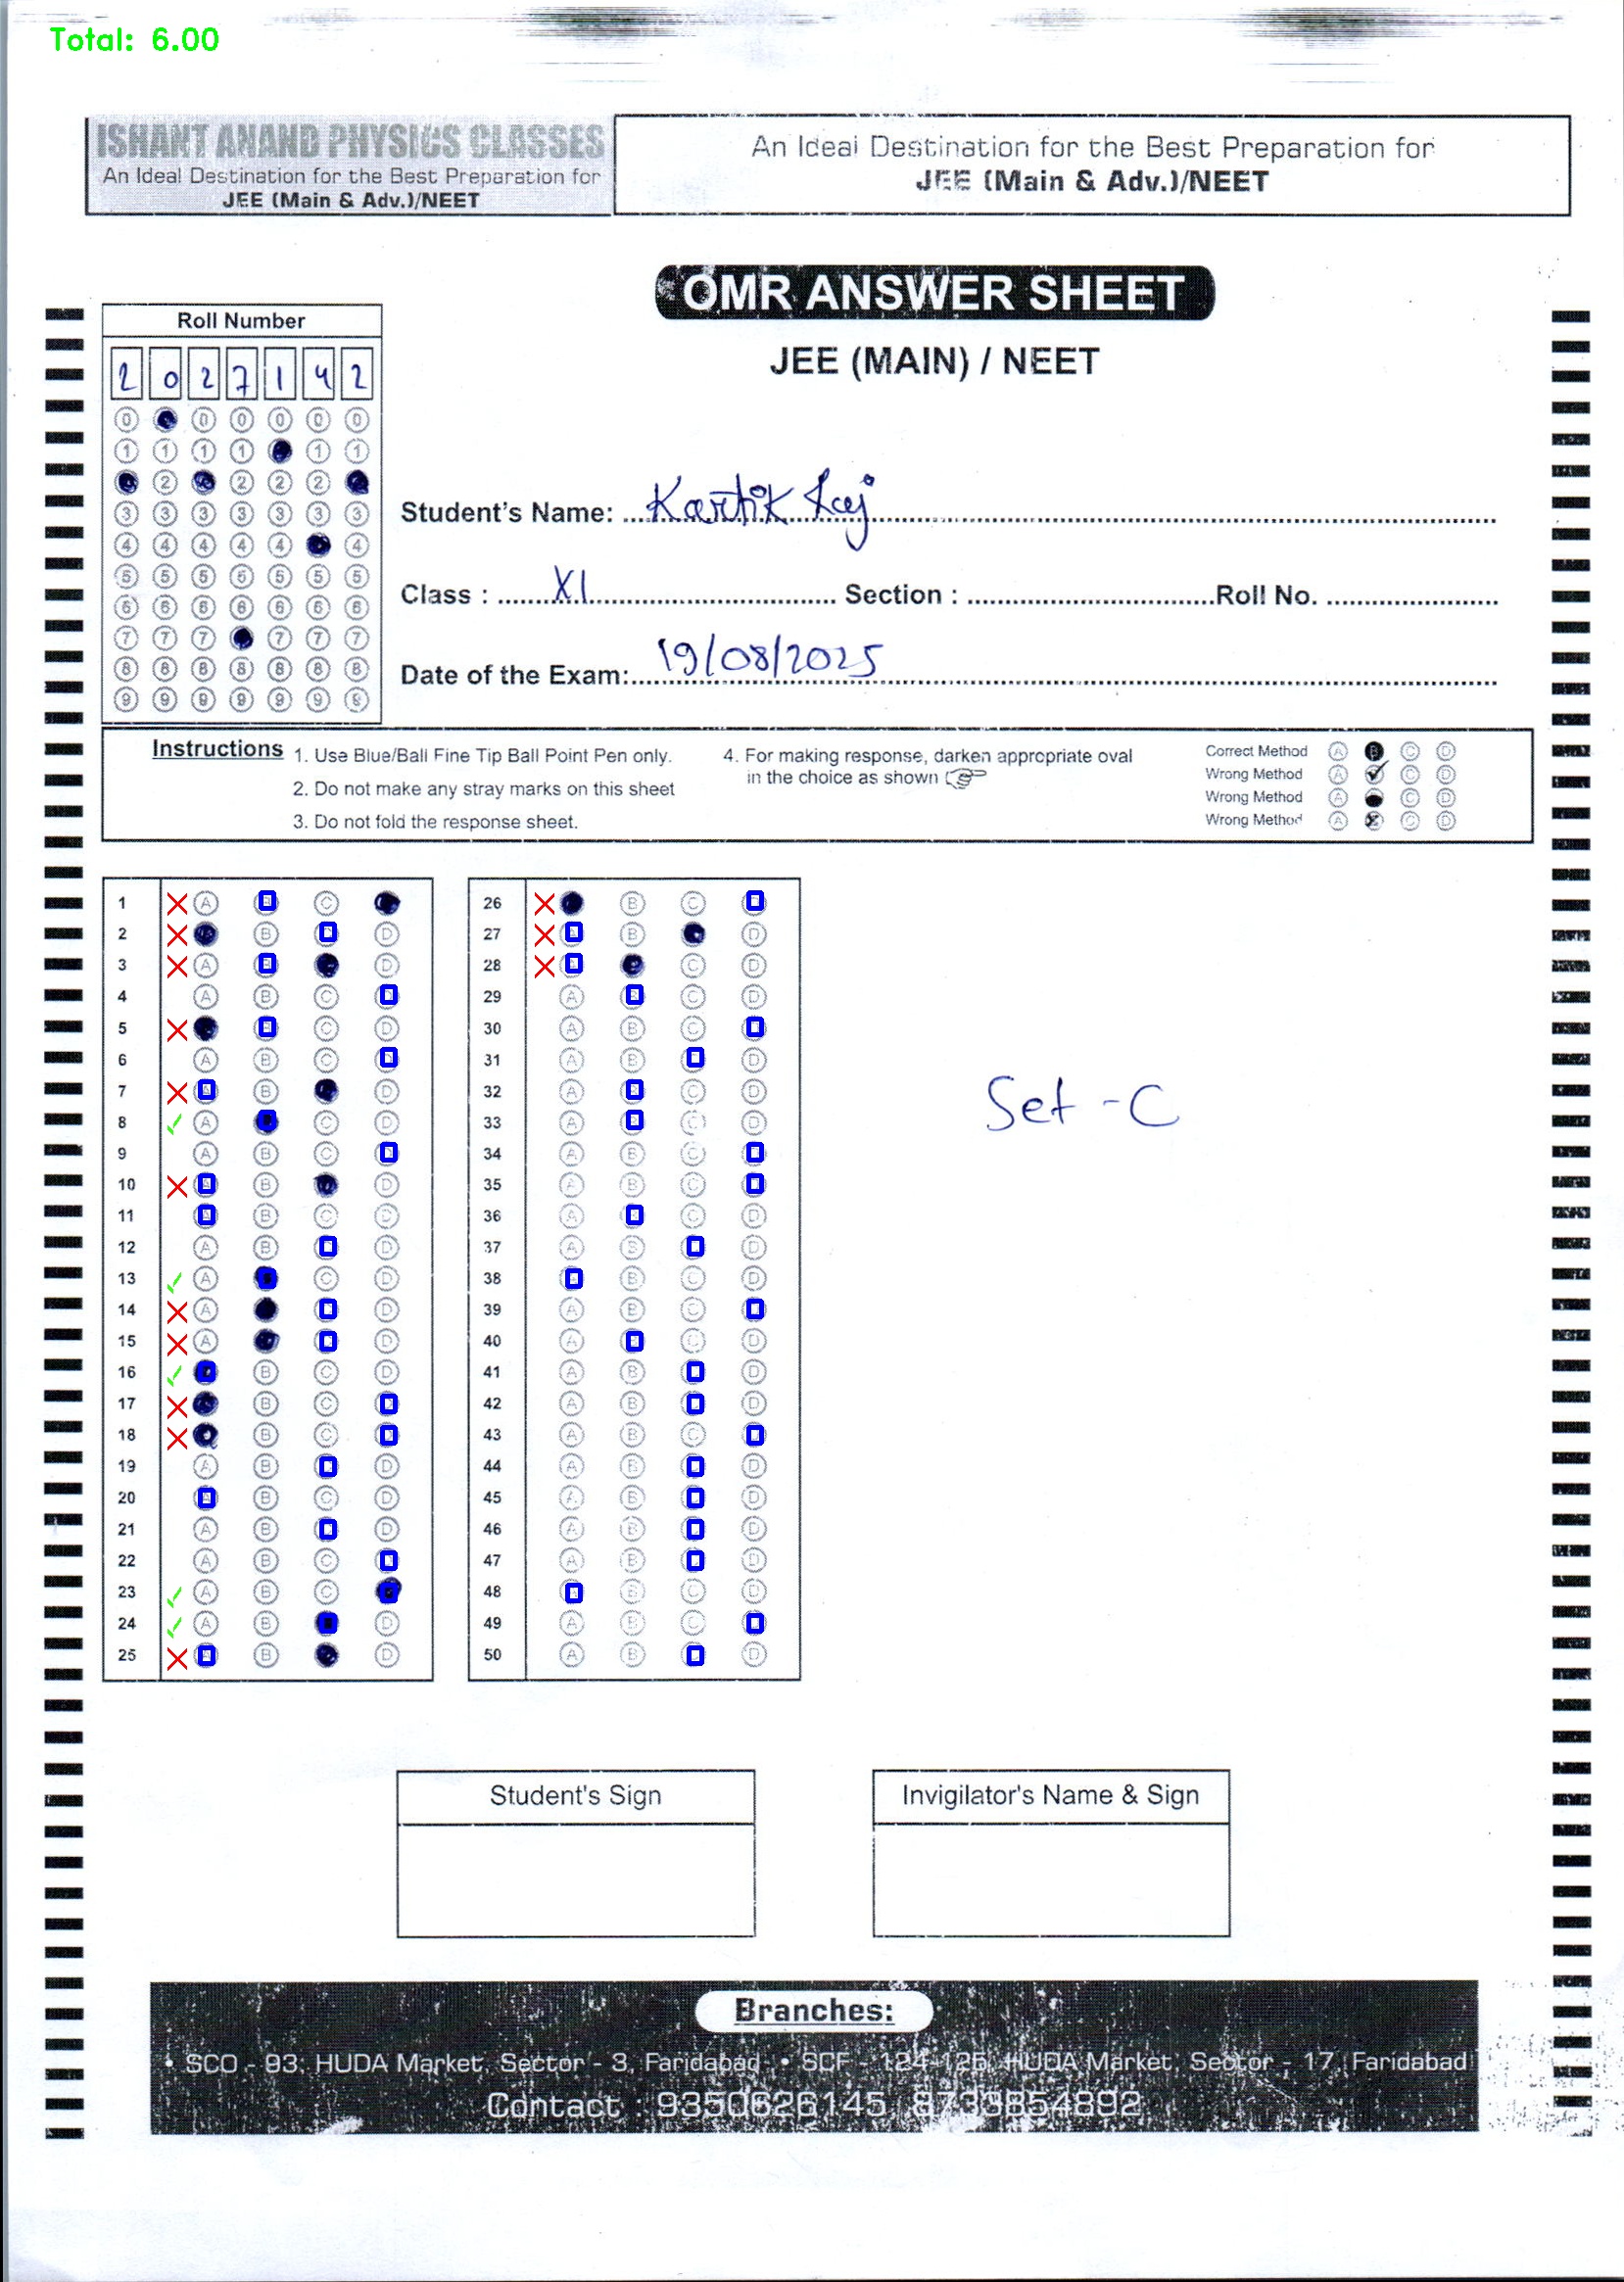 Total: 6.00
ISHANT ANAND PHYSICS CLASSES
An Ideal Destination for the Best Preparation for
JEE (Main & Adv.)/NEET
An Ideal Destination for the Best Preparation for
JEE (Main & Adv.)/NEET
OMR ANSWER SHEET
JEE (MAIN) / NEET
Roll Number
2 0 2 7 1 4 2
0 0 0 0 0 0
1 1 1 1 1 1
2 2 2 2
3 3 3 3 3 3 3
4 4 4 4 4 4
5 5 5 5 5 5 5
6 6 6 6 6 6 6
7 7 7 7 7 7
8 8 8 8 8 8 8
9 9 9 9 9 9 9
Student's Name: Kartik Raj
Class : XI Section : Roll No.
Date of the Exam: 19/08/2025
Instructions
1. Use Blue/Ball Fine Tip Ball Point Pen only.
2. Do not make any stray marks on this sheet
3. Do not fold the response sheet.
4. For making response, darken appropriate oval
in the choice as shown
Correct Method A B C D
Wrong Method A C D
Wrong Method A C D
Wrong Method A C D
1 A C
2 B D
3 A D
4 A B C
5 C D
6 A B C
7 B D
8 A C D
9 A B C
10 B D
11 B C D
12 A B D
13 A C D
14 A D
15 A D
16 B C D
17 B C
18 B C
19 A B D
20 B C D
21 A B D
22 A B C
23 A B C
24 A B D
25 B D
26 B C
27 B D
28 C D
29 A C D
30 A B C
31 A B D
32 A C D
33 A C D
34 A B C
35 A B C
36 A C D
37 A B D
38 B C D
39 A B C
40 A C D
41 A B D
42 A B D
43 A B C
44 A B D
45 A B D
46 A B D
47 A B D
48 B C D
49 A B C
50 A B D
Set - C
Student's Sign
Invigilator's Name & Sign
Branches:
• SCO - 93, HUDA Market, Sector - 3, Faridabad • SCF - 124-125, HUDA Market, Sector - 17, Faridabad
Contact : 9350626145, 8733854892